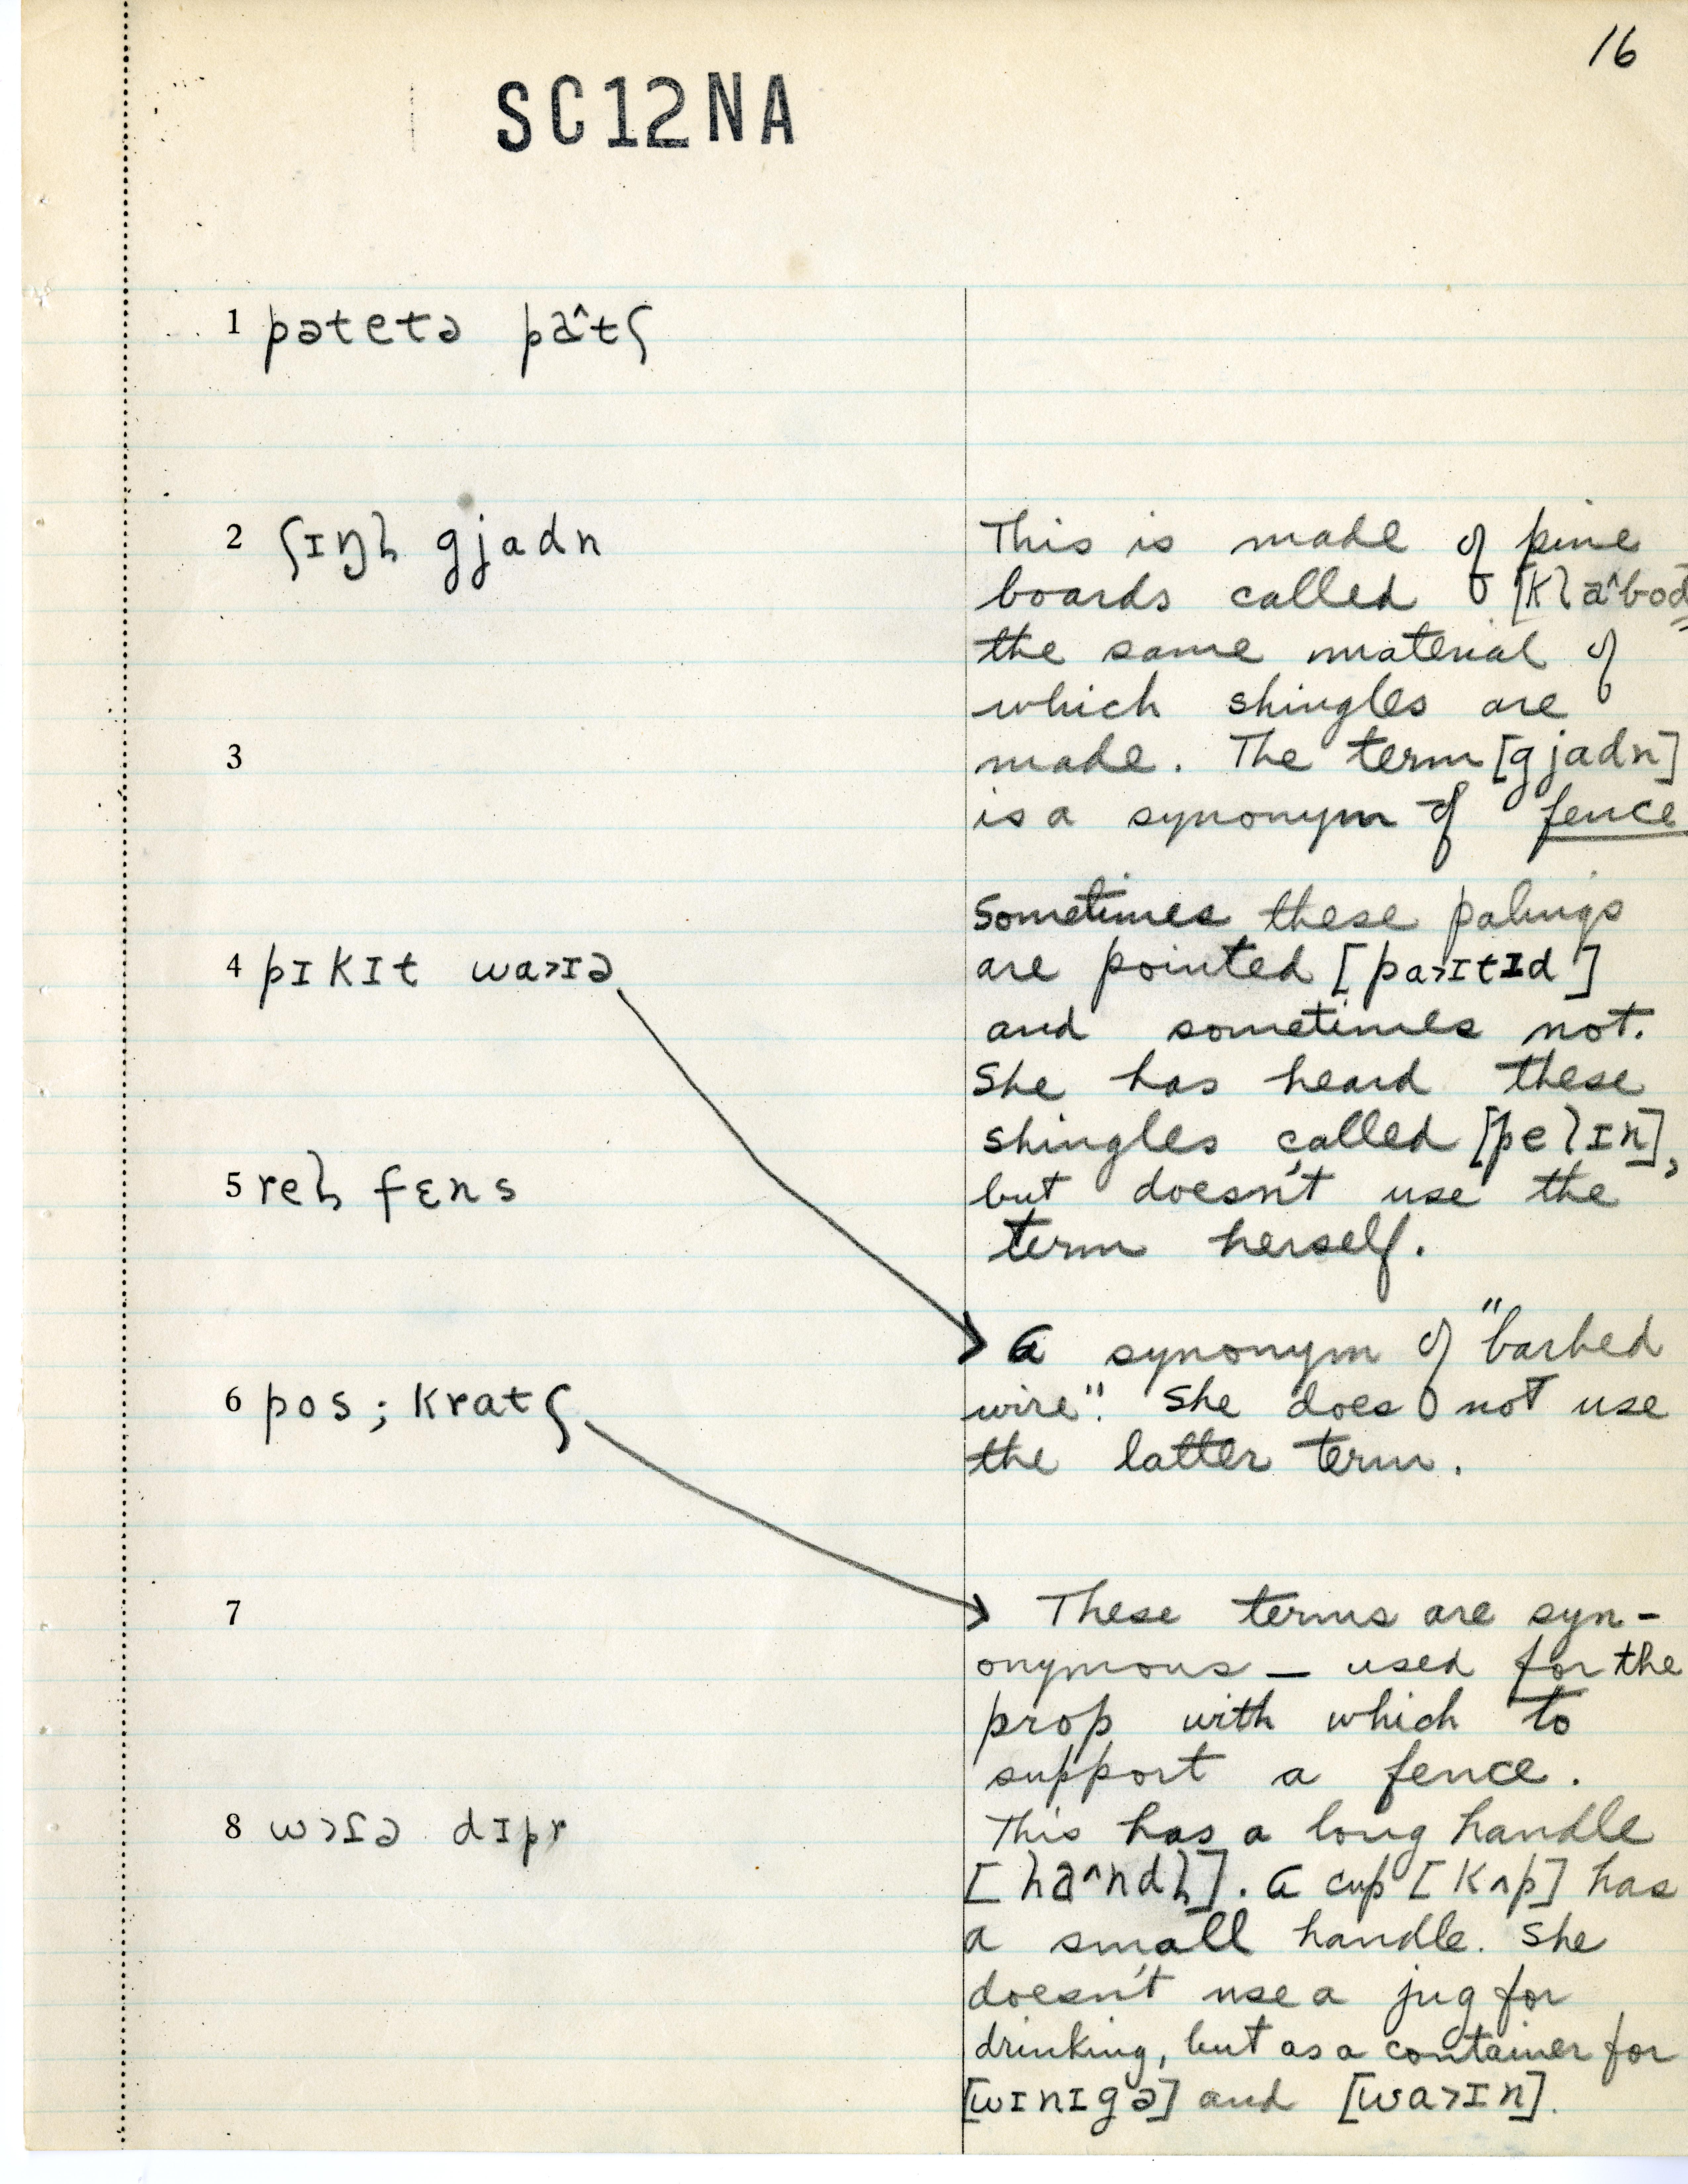 16
SC12NA
1 pətetə pa^tʃ
2 ʃɪŋl̩ gjadn
This is made of pine
boards called [kla^bod
the same material of
which shingles are
3
made. The term [gjadn]
is a synonym of fence
Sometimes these palings
4 pɪkɪt wa>ɪə
are pointed [pa>ɪtɪd]
and sometimes not.
She has heard these
shingles called [pelɪn],
5 rel̩ fɛns
but doesn't use the
term herself.
A synonym of "barbed
6 pos; kratʃ
wire". She does not use
the latter term.
7
These terms are syn-
onymous — used for the
prop with which to
support a fence.
8 dɪpr
This has a long handle
[ha^ndl̩]. A cup [kʌp] has
a small handle. She
doesn't use a jug for
drinking, but as a container for
[wɪnɪgə] and [wa>ɪn].